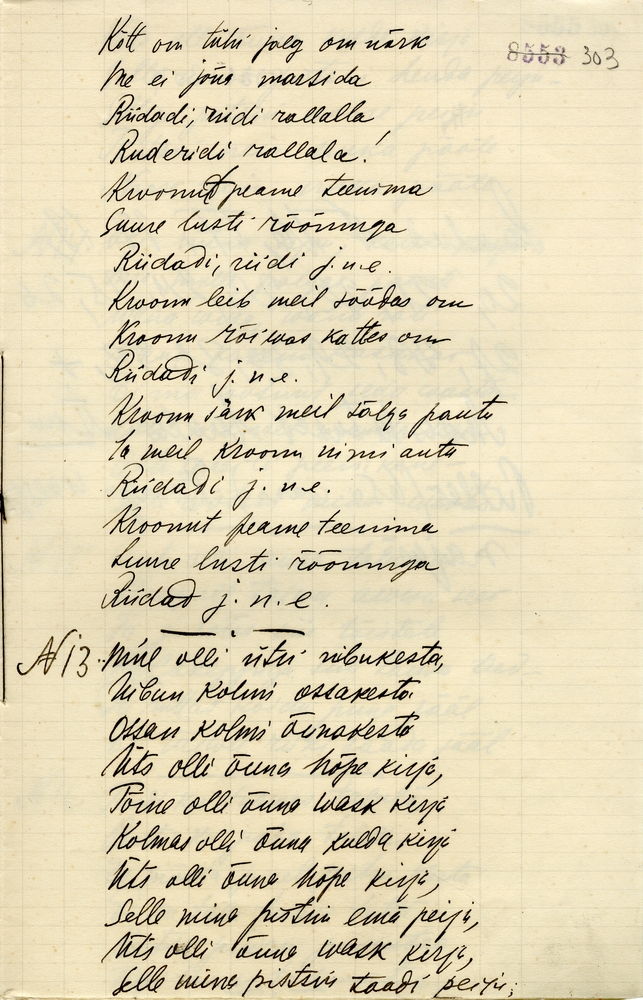 8553 303
Kõtt om tühi jalg om nõrk
Me ei jõua marsida
Riidadi, riidi rallalla
Ruderidi rallala!
Kroonut peame teenima
Suure lusti rõõmuga
Riidadi, riidi j.n.e.
Kroonu leib meil söödas om
Kroonu rõiwas kattes om
Riidadi j. n. e.
Kroonu särk meil sälga pantu
Ja meil kroonu nimi antu
Riidadi j. n. e.
Kroonut peame teenima
Suure lusti rõõmuga
Riidad j. n. e.
N 13. Mul olli ütsi
Uibun kolmi ossakesta
Ossan kolmi õunakesta
Üts olli õuna hõpe kirja,
Tõine olli õuna wask kirja
Kolmas olli õuna kulda kirja
Üts olli õuna hõpe kirja,
Selle mina pistsin ema peija,
Üts olli õuna wask kirja,
Selle mina pistsin taadi peija;